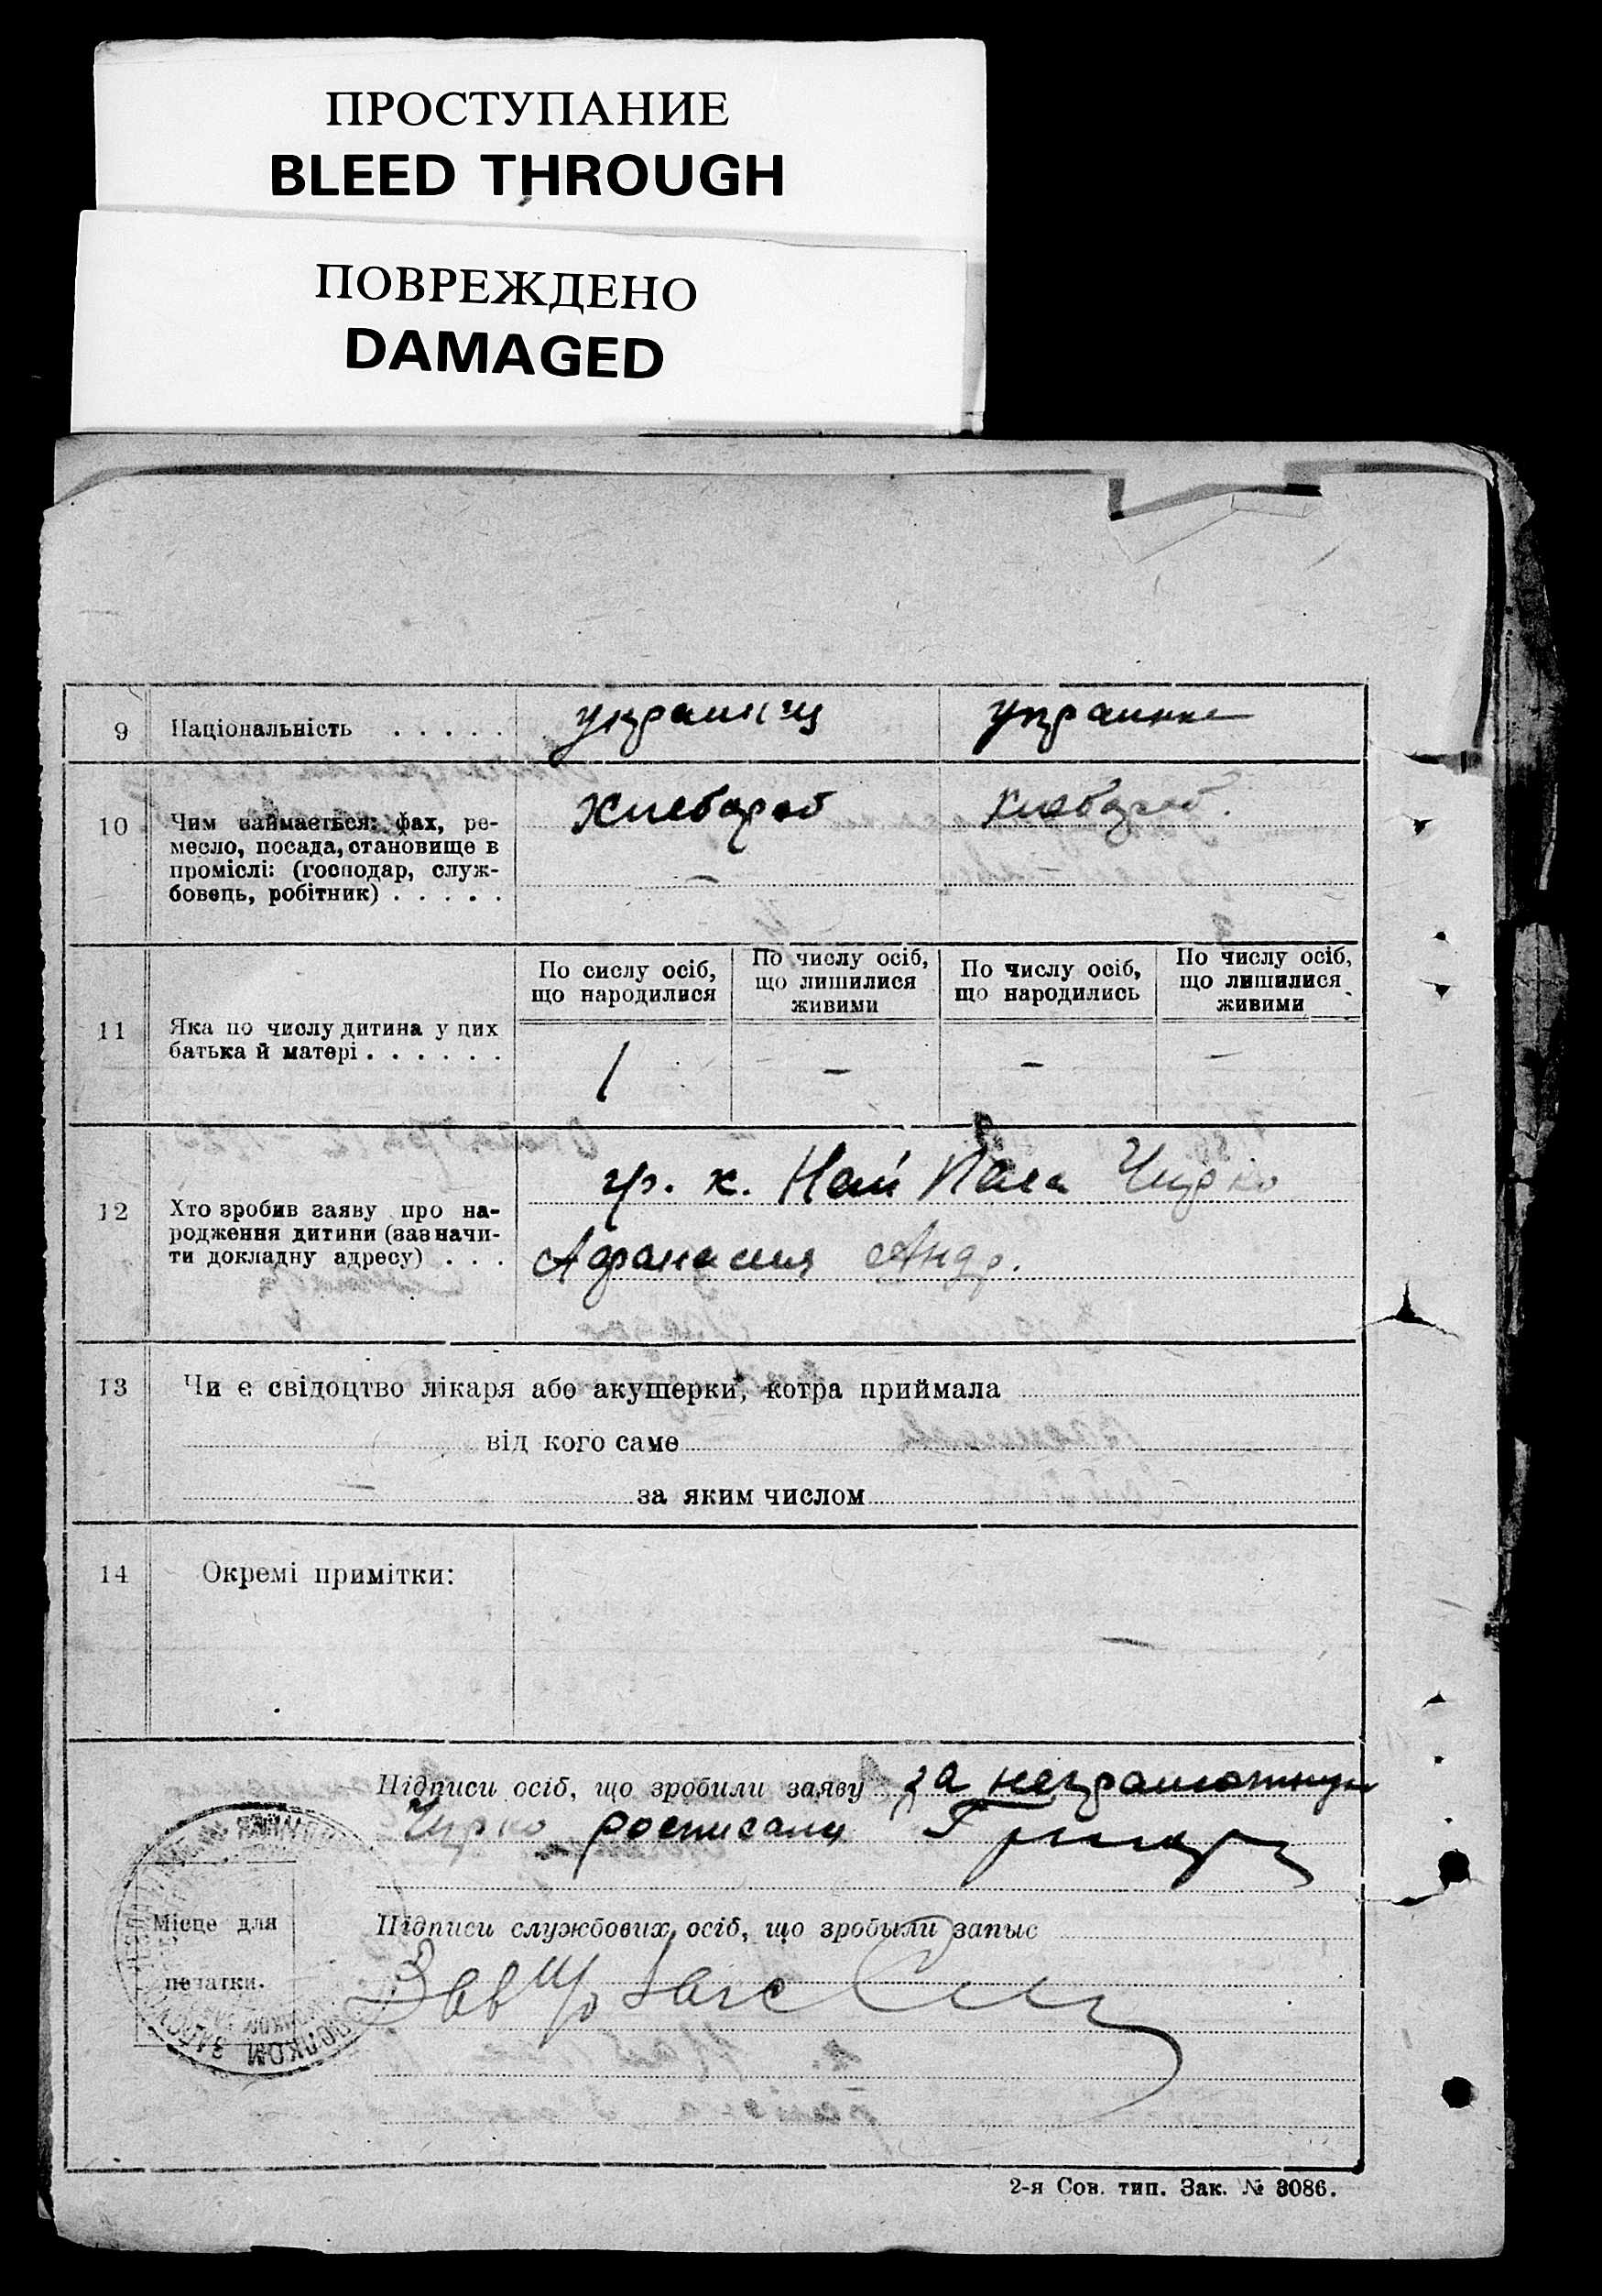 ПРОСТУПАНИЕ
BLEED THROUGH
ПОВРЕЖДЕНО
DAMAGED
9 Національність . . . . . украинц украинка
10 Чим займається: фах, ре-
месло, посада, становище в
проміслі: (господар, служ-
бовець, робітник) . . . . .
Хлебороб Хлебороб.
–
11 Яка по числу дитина у цих
батька й матері . . . . . .
По сислу осіб,
що народилися
По числу осіб,
що лишилися
живими
По числу осіб,
що народились
По числу осіб,
що лишилися
живими
1 – – –
12 Хто зробив заяву про на-
родження дитини (зазначи-
ти докладну адресу) . . .
гр. к. Чирко
Афанасия Андр.
13 Чи є свідоцтво лікаря або акушерки, котра приймала
від кого саме
– за яким числом
14 Окремі примітки:
–
Підписи осіб, що зробили заяву за неграмотную
Чирко росписался
Місце для
печатки.
Підписи службових осіб, що зробыли запыс
Зав
2-я Сов. тип. Зак. № 3086.